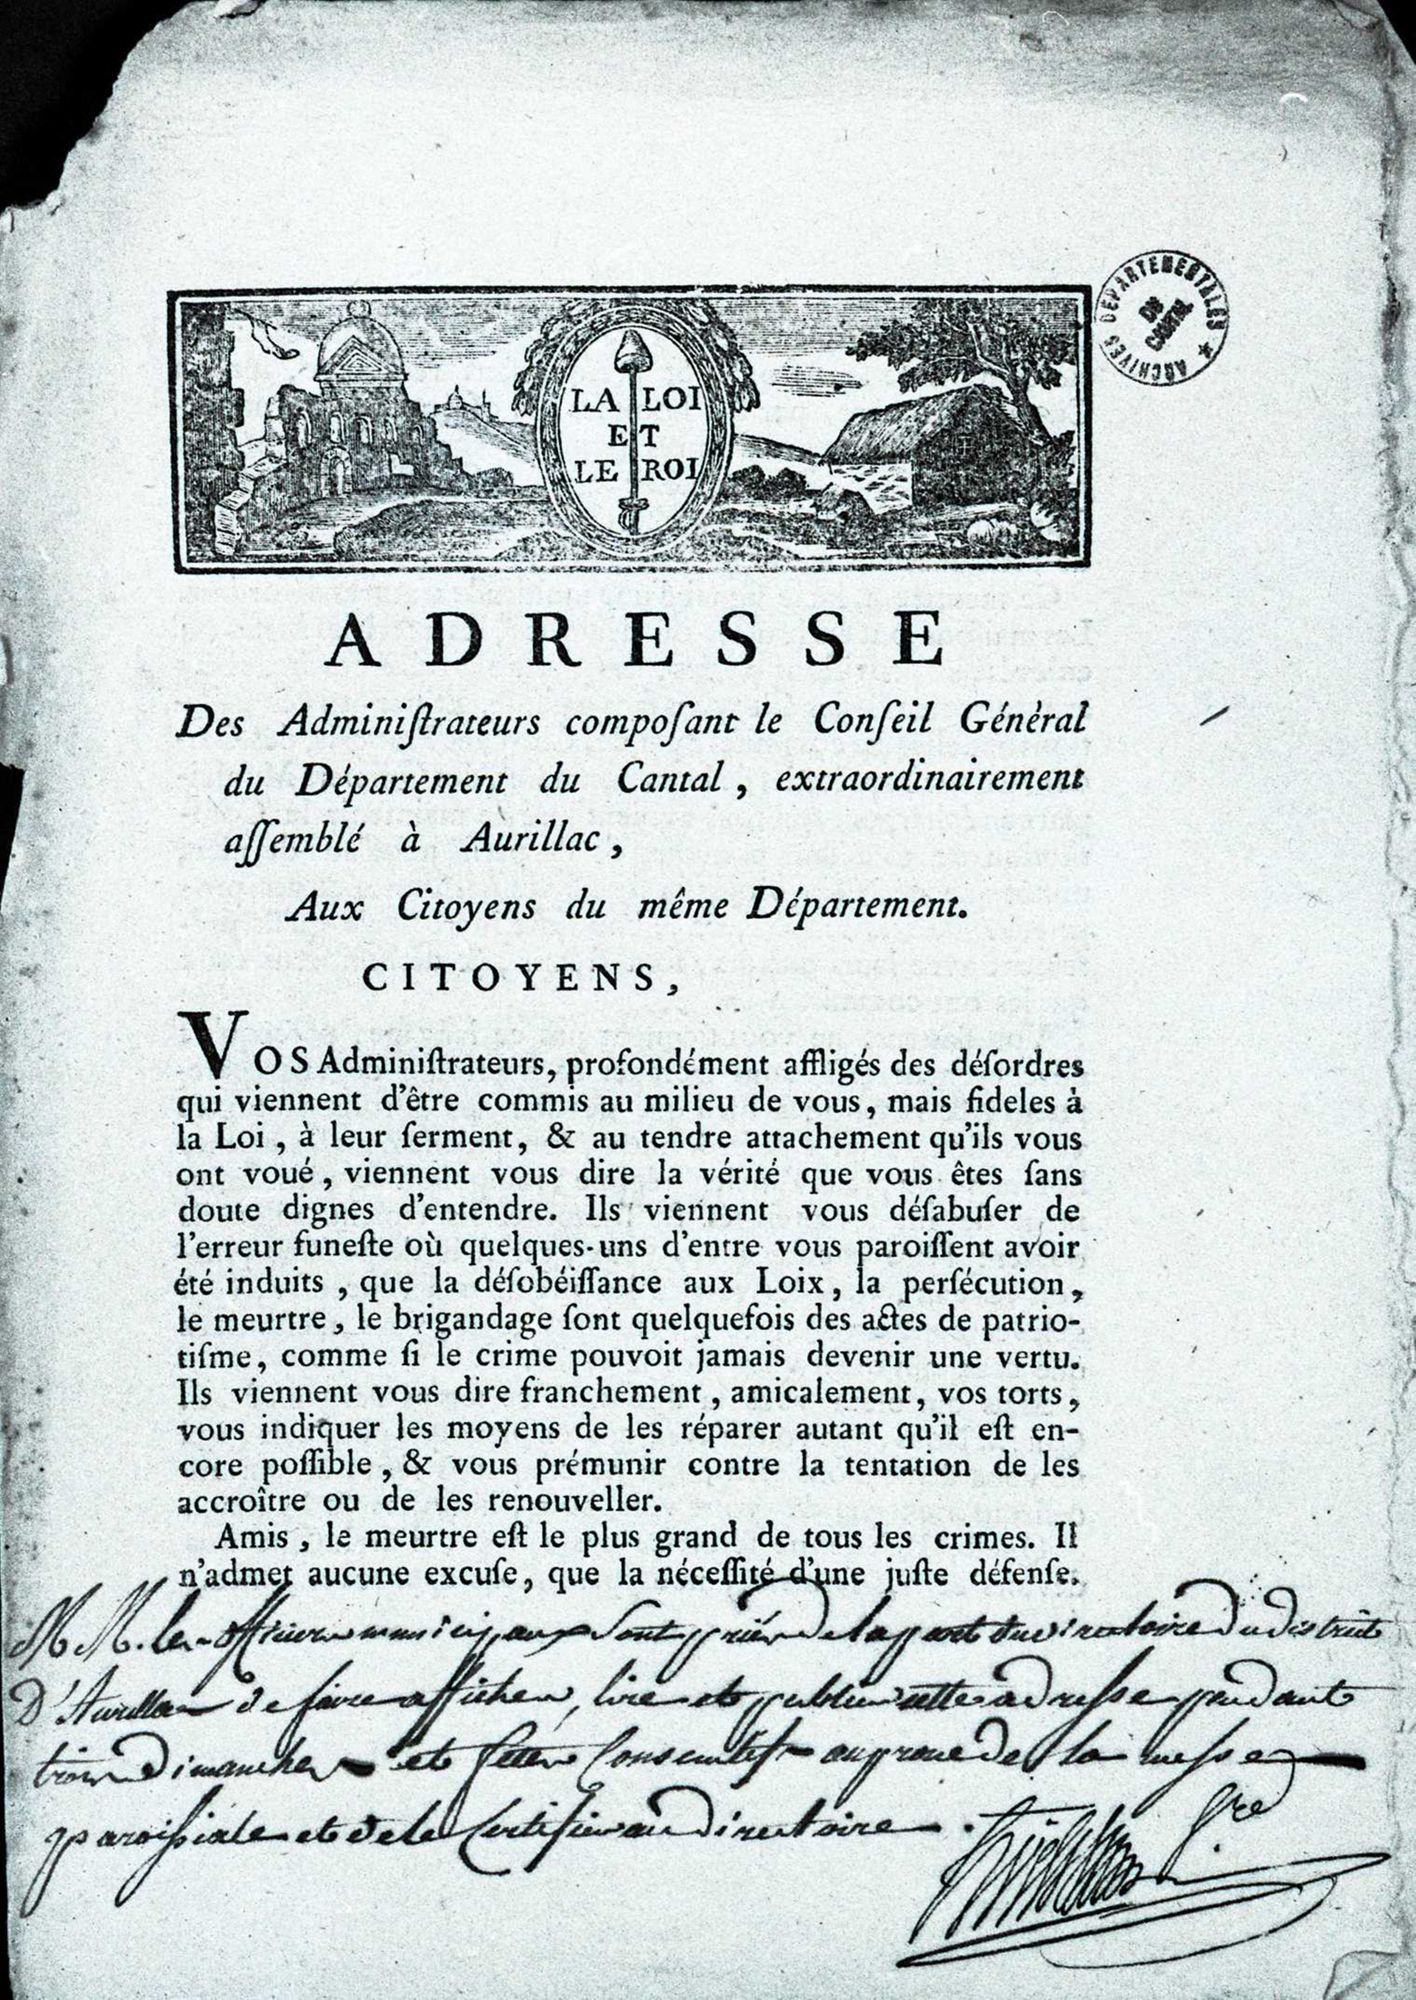 LA LOI
ET
LE ROI
ARCHIVES DEPARTEMENTALES *
DU
CANTAL
ADRESSE
Des Adminiſtrateurs compoſant le Conſeil Général
du Département du Cantal, extraordinairement
aſſemblé à Aurillac,
Aux Citoyens du même Département.
CITOYENS,
VOS Adminiſtrateurs, profondément affligés des déſordres
qui viennent d'être commis au milieu de vous, mais fideles à
la Loi, à leur ſerment, & au tendre attachement qu'ils vous
ont voué, viennent vous dire la vérité que vous êtes ſans
doute dignes d'entendre. Ils viennent vous déſabuſer de
l'erreur funeſte où quelques-uns d'entre vous paroiſſent avoir
été induits, que la déſobéiſſance aux Loix, la perſécution,
le meurtre, le brigandage ſont quelquefois des actes de patrio-
tiſme, comme ſi le crime pouvoit jamais devenir une vertu.
Ils viennent vous dire franchement, amicalement, vos torts,
vous indiquer les moyens de les réparer autant qu'il eſt en-
core poſſible, & vous prémunir contre la tentation de les
accroître ou de les renouveller.
Amis, le meurtre eſt le plus grand de tous les crimes. Il
n'admet aucune excuſe, que la néceſſité d'une juſte défenſe.
M M. les officiers municipaux sont priés de la part du directoire du district
D'Aurillac de faire afficher, lire et publier cette adresse pendant
trois Dimanches et fetes Consecutifs au prone de la messe
paroissiale et de le Certifier au directoire.
Sre